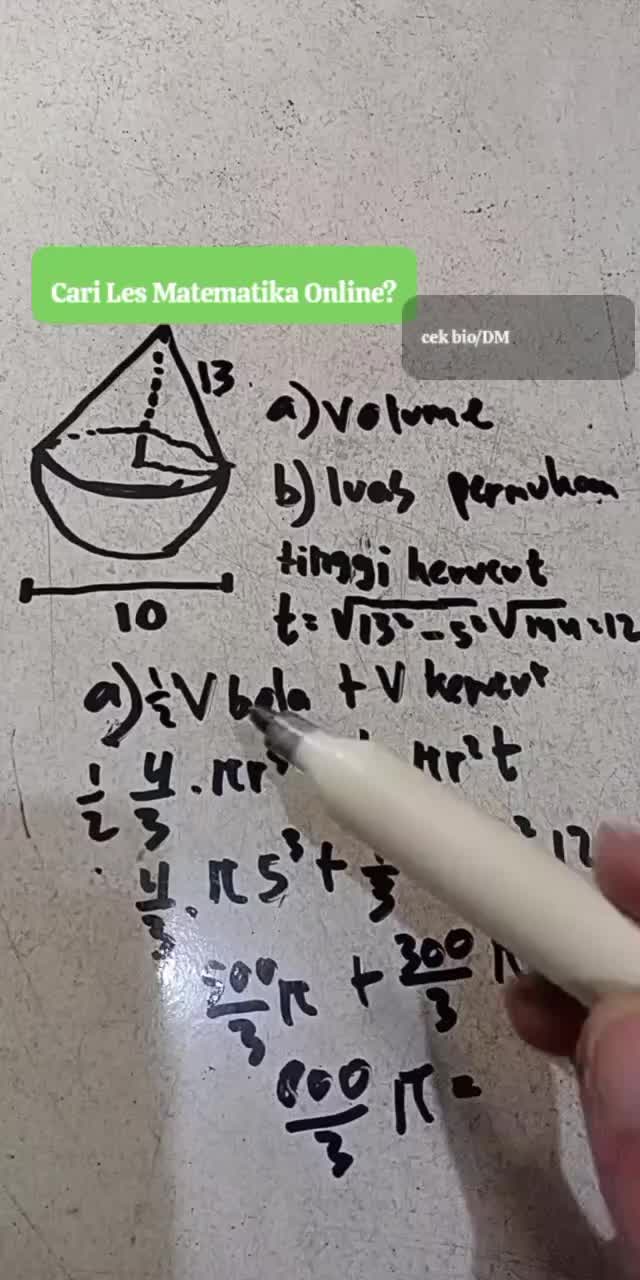 Cari Les Matematika Online?
cek bio/DM
13
a) Volume
b) luas permukaan
tinggi kerucut
10
t = √13² - 5² √144 = 12
a) ½ V bola + V kerucut
1/2 4/3 . πr³ πr²t
4/3 . π 5³ + 1/3 ² 12
500/3 π + 300/3 π
800/3 π =